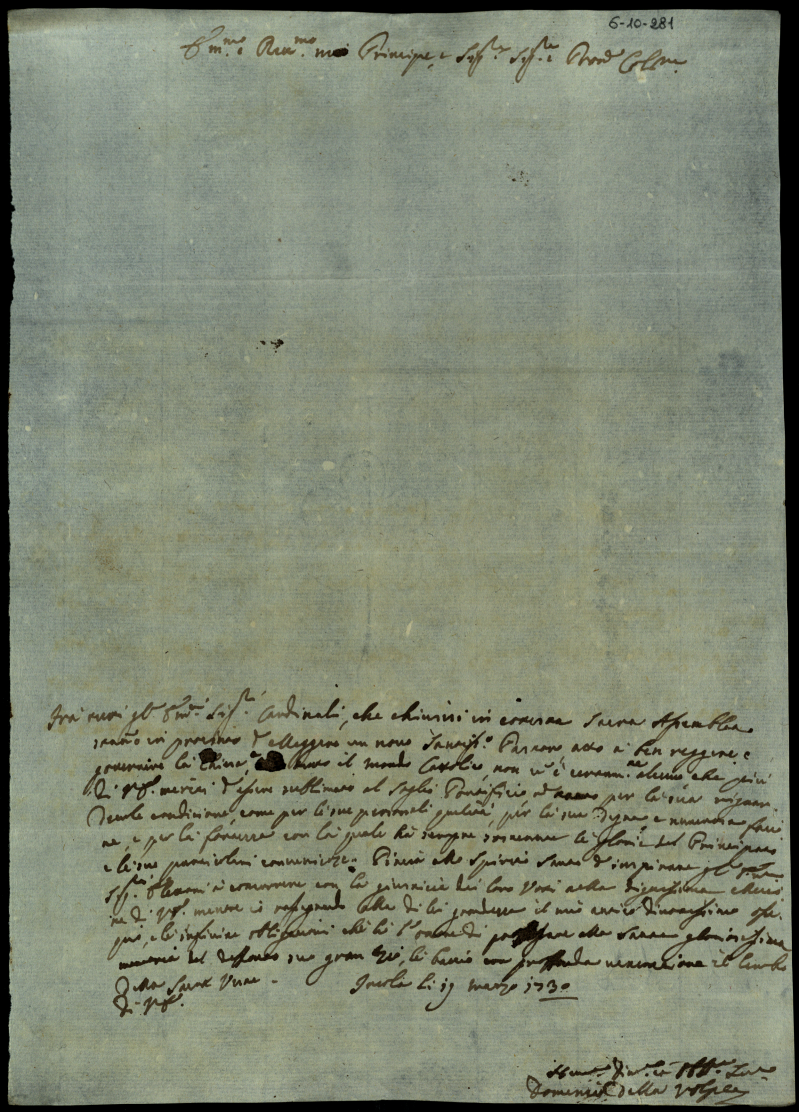 6-10-281
Em.mo e Rev.mo mio Principe, e Sig.re Sig.re e Pron.e Col.mo
Tra tutti gl' Em.i Sig.ri Cardinali, che chiusi in cotesta Sacra Assemblea
stanno in procinto d'elleggere un novo Santiss.o Pastore atto a ben reggere, e
governare la Chiesa, e tutto il mondo Catolico, non v'è certam.te alcuno che più
di V.E. meriti d'essere sublimato al Soglio Pontificio ed per la sua
condizione, come per le sue personali qualità, per le sue degne e
e per la fortezza con la quale hà sempre sostenute le glorie del Principato
e le sue Piaccia allo Spirito Santo d'inspirare gl'
Sig.ri a concorrere con la giustizia dei loro Voti nella degnissima
ne di V.E. mentre io rassegnando alla di lei grandezza il mio antico divotissimo osse-
quio, e le infinite obligazioni che hò l'onore di professare alla Santa gloriosissima
memoria del defonto suo gran Zio, le bacio con profonda venerazione il lembo
della Sacra
di V.E. Imola li 19 marzo 1730
Um.o Div.o ed Obb.o Ser.e
Domenico della Volpe